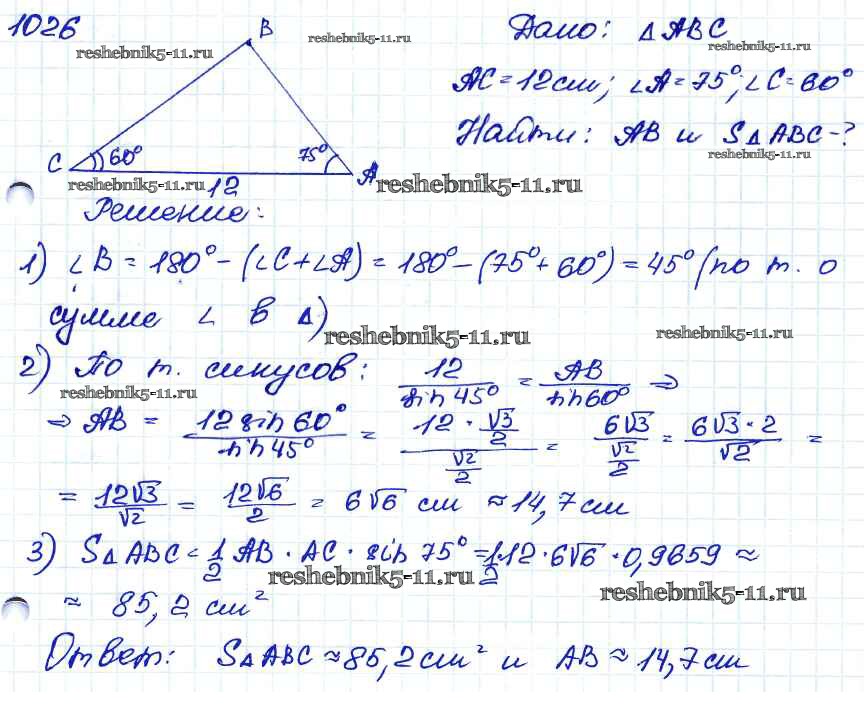 1026
B
reshebnik5-11.ru
reshebnik5-11.ru
Дано: △ABC
reshebnik5-11.ru
AC = 12 см; ∠A = 75°; ∠C = 60°
Найти: AB и S△ABC - ?
reshebnik5-11.ru
C 60° 75° A
reshebnik5-11.ru
12
reshebnik5-11.ru
Решение:
1) ∠B = 180° - (∠C + ∠A) = 180° - (75° + 60°) = 45° (по т. о
сумме ∠ в △)
reshebnik5-11.ru
reshebnik5-11.ru
2) По т. синусов: 12/sin 45° = AB/sin 60° ⇒
reshebnik5-11.ru
⇒ AB = 12 sin 60°/sin 45° = (12 · √3/2)/(√2/2) = 6√3/(√2/2) = 6√3 · 2/√2 =
= 12√3/√2 = 12√6/2 = 6√6 см ≈ 14,7 см
3) S△ABC = 1/2 AB · AC · sin 75° = 1/2 12 · 6√6 · 0,9659 ≈
reshebnik5-11.ru
reshebnik5-11.ru
≈ 85,2 см²
Ответ: S△ABC ≈ 85,2 см² и AB ≈ 14,7 см